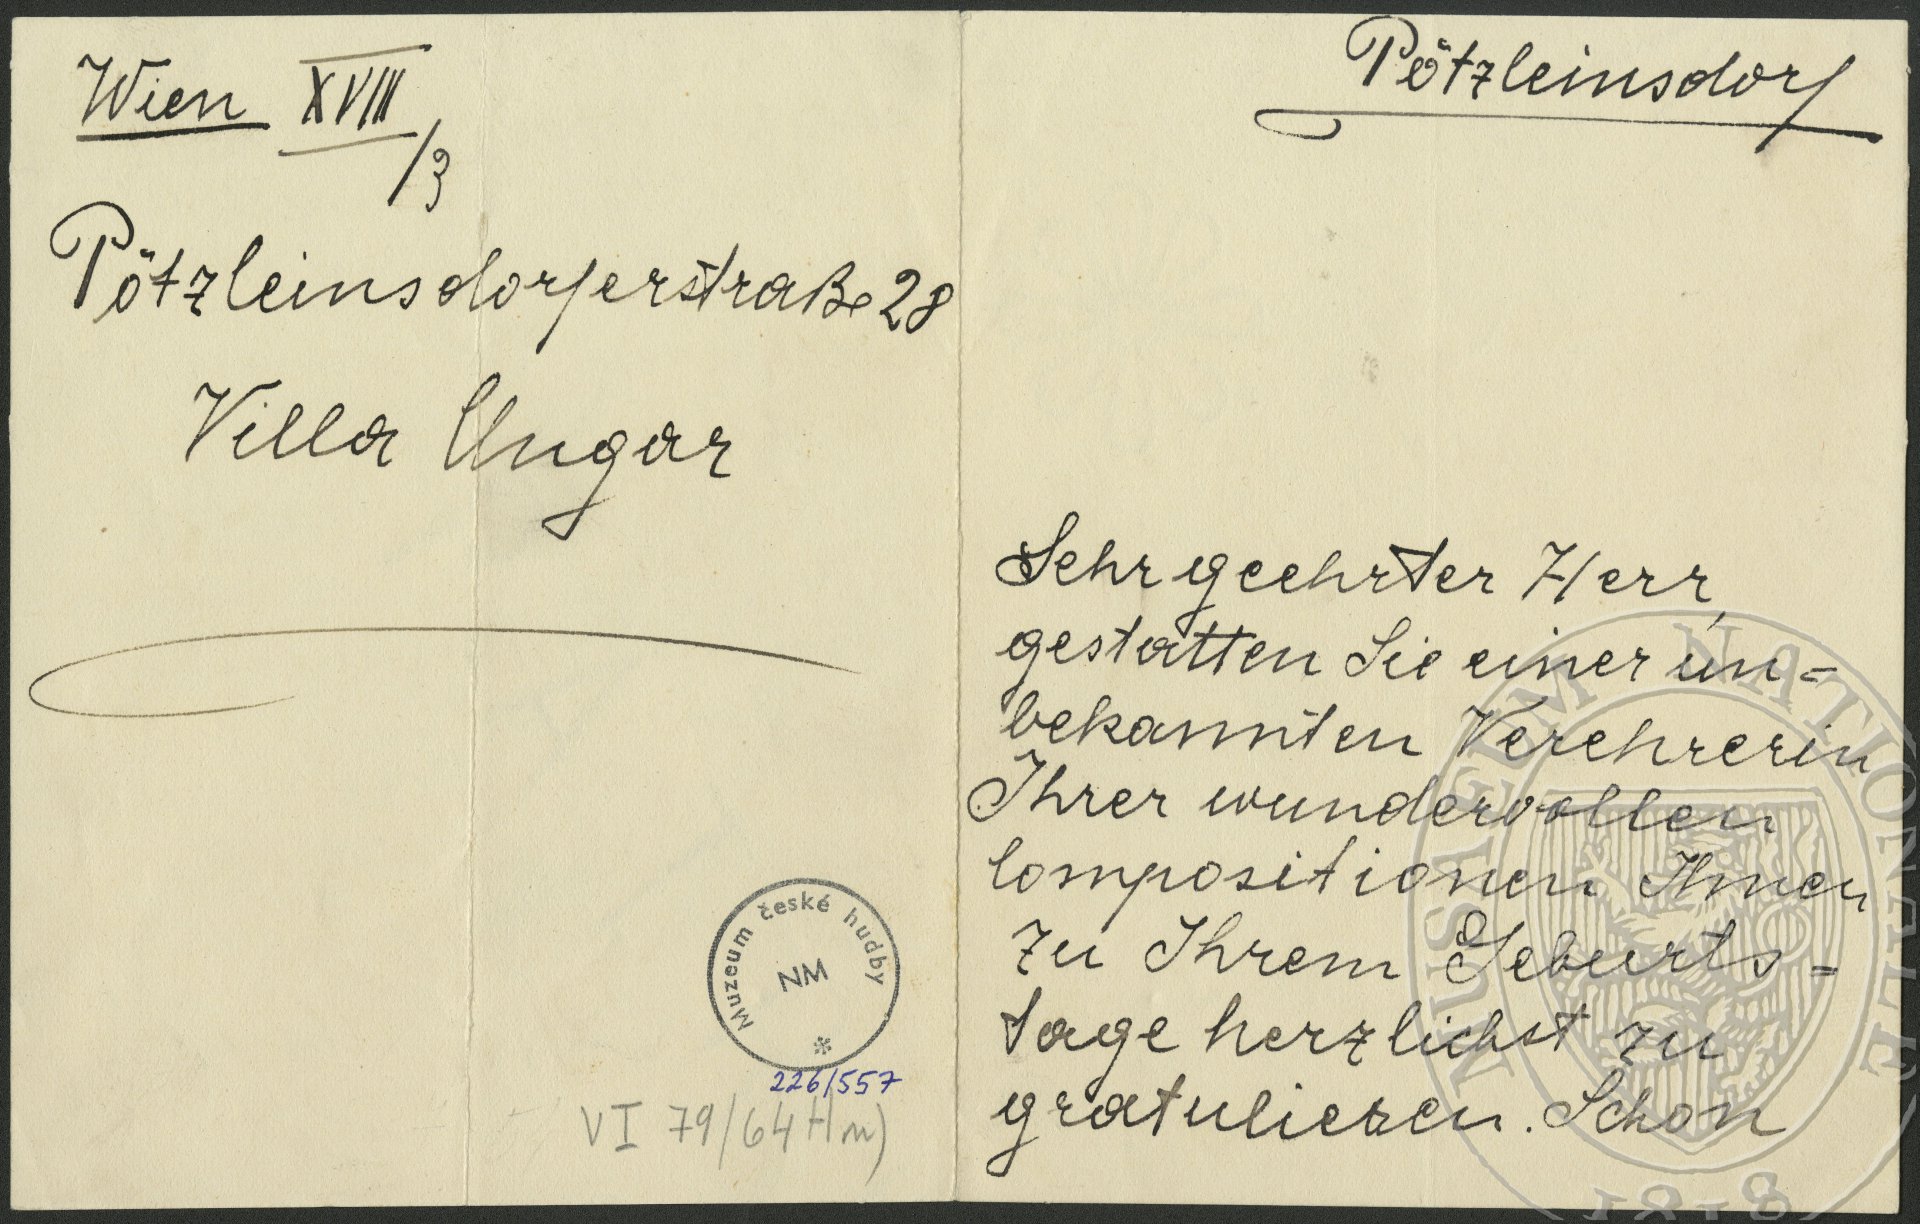 Wien XVIII
/3
Pötzleinsdorferstraße 28
Villa Ungar
Muzeum české hudby
NM
*
226/557
VI 79/64 Hm)
Pötzleinsdorf
Sehr geehrter Herr,
gestatten Sie einer un=
bekannten Verehrerin
Ihrer wundervollen
Compositionen Ihnen
zu Ihrem Geburts=
tage herzlichst zu
gratulieren. Schon
MUSAEUM NATIONALE
1818